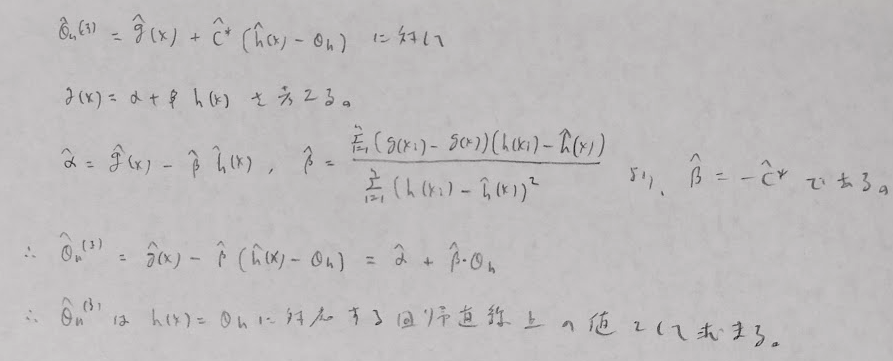 θ̂ₙ⁽³⁾ = ĝ(x) + ĉ* (ĥ(x) - θₕ) に対して
g(x) = α + β h(x) を考える。
α̂ = ĝ(x) - β̂ ĥ(x), β̂ = Σⁿᵢ₌₁ (g(xᵢ) - ĝ(x))(h(xᵢ) - ĥ(x)) / Σⁿᵢ₌₁ (h(xᵢ) - ĥ(x))² より、 β̂ = -ĉ* である。
∴ θ̂ₙ⁽³⁾ = ĝ(x) - β̂ (ĥ(x) - θₕ) = α̂ + β̂・θₕ
∴ θ̂ₙ⁽³⁾ は h(x) = θₕ に対応する回帰直線上の値として求まる。